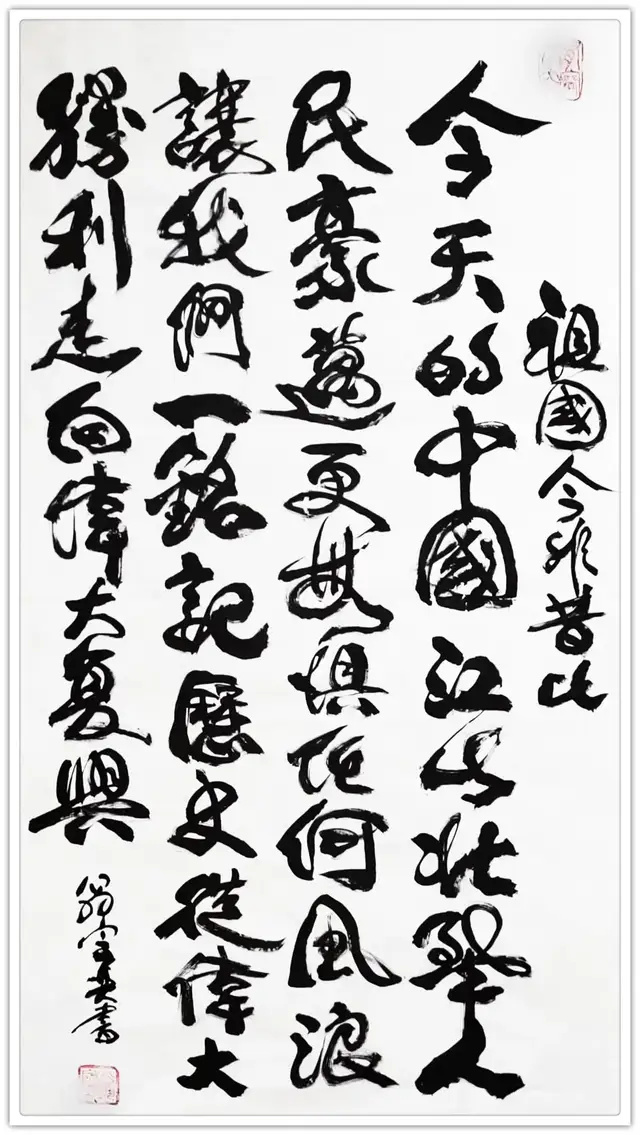 祖國今非昔比
今天的中國江山壯麗人
民豪邁更無懼任何風浪
讓我們一銘記歷史從偉大
勝利走向偉大复興
書